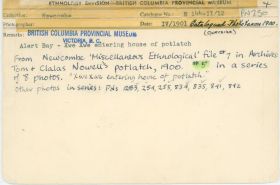 ETHNOLOGY DIVISION - BRITISH COLUMBIA PROVINCIAL MUSEUM
Newcombe
Catalogue No.
PN 250
Photographer:
Date: IV/1901
BRITISH COLUMBIA PROVINCIAL MUSEUM
VICTORIA, B. C.
Alert Bay - Xwe Xwe entering house of potlatch
From Newcombe 'Miscellaneous Ethnological' file #7 in Archives
Tom + Clalas Nowell's potlatch, 1900. #5 in a series
of 8 photos. "Xwe Xwe entering house of potlatch"
Other photos in series: PNs 253, 254, 255, 834, 835, 841, 842